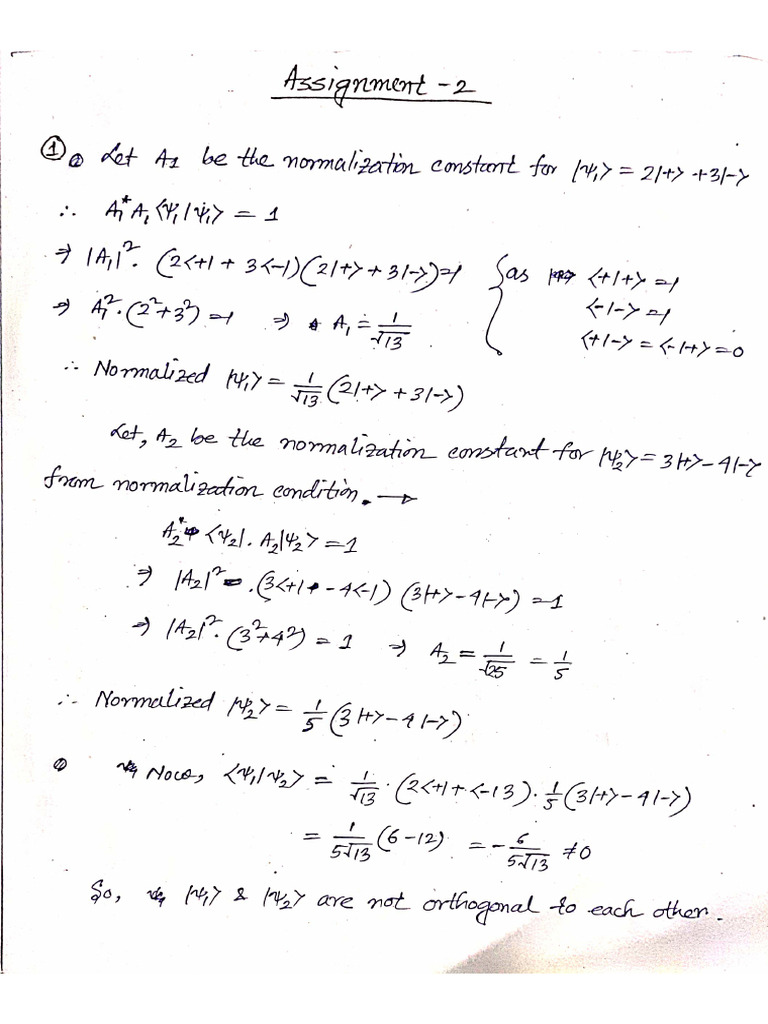 Assignment - 2
① Let A1 be the normalization constant for |ψ₁> = 2|+> + 3|->
∴ A₁* A₁ <ψ₁|ψ₁> = 1
⇒ |A₁|². (2<+| + 3<-|)(2|+> + 3|->) = 1 { as <+|+> = 1
⇒ A₁². (2² + 3²) = 1 ⇒ A₁ = 1/√13 <-|-> = 1
<+|-> = <-|+> = 0
∴ Normalized |ψ₁> = 1/√13 (2|+> + 3|->)
Let, A2 be the normalization constant for |ψ₂> = 3|+> - 4|->
from normalization condition. →
A₂* <ψ₂|. A₂|ψ₂> = 1
⇒ |A₂|² . (3<+| - 4<-|) (3|+> - 4|->) = 1
⇒ |A₂|². (3² + 4²) = 1 ⇒ A₂ = 1/√25 = 1/5
∴ Normalized |ψ₂> = 1/5 (3|+> - 4|->)
Now, <ψ₁|ψ₂> = 1/√13 . (2<+| + <-|3). 1/5 (3|+> - 4|->)
= 1/5√13 (6 - 12) = - 6/5√13 ≠ 0
So, |ψ₁> & |ψ₂> are not orthogonal to each other.